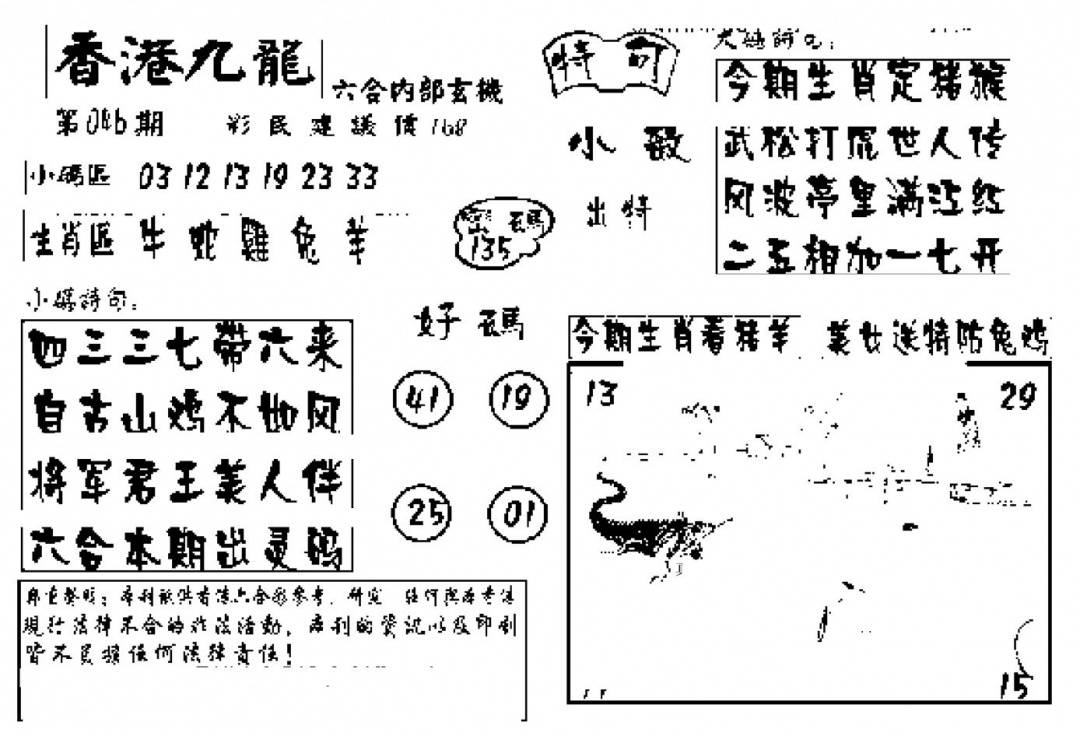 香港九龍
六合内部玄機
第046期 彩民建議價168
小碼區 03 12 13 19 23 33
生肖區 牛 蛇 雞 兔 羊
密碼
135
特句
小 敢
出特
大碼詩句:
今期生肖定猪猴
武松打虎世人传
风波亭里满江红
二五相加一七开
小碼詩句:
四三三七帶六来
自古山鸡不如凤
将军君王美人伴
六合本期出灵码
好碼
41 19
25 01
今期生肖看猪羊 美女送特防兔鸡
13 29
15
鄭重聲明:本刊祇供香港六合彩參考、研究 任何與本考港
現行法律不合的非法活動,本刊的資訊以及印刷
皆不負擔任何法律責任!